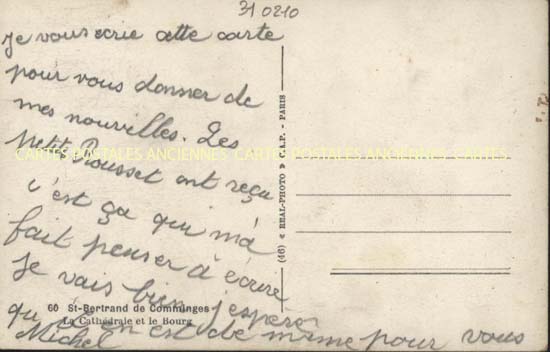 31 0210
Je vous ecrie cette carte
pour vous donner de
mes nouvelles. Les
petit Rousset ont reçu
CARTES POSTALES ANCIENNES CARTES POSTALES ANCIENNES CARTES
c'est ça qui m'a
fait penser à écrire
Je vais bien j'espère
60 St-Bertrand de Comminges
La Cathédrale et le Bourg
qu'il en est de même pour vous
Michel
(46) « REAL-PHOTO » C.A.P. - PARIS